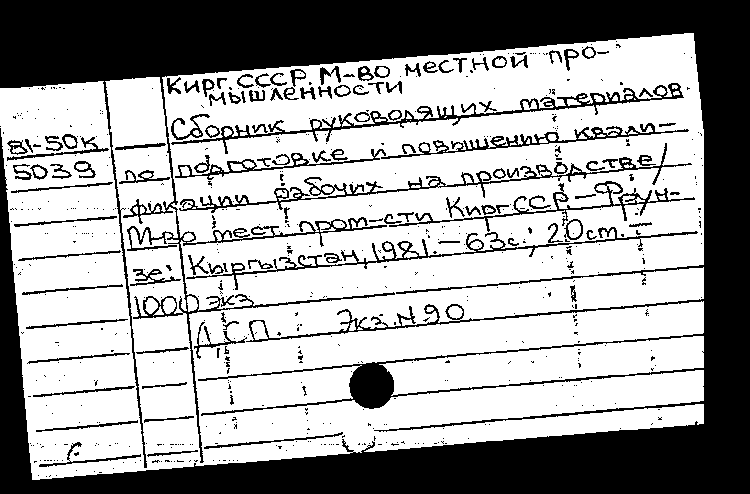 Кирг.ССР. М-во местной про-
мышленности
Сборник руководящих материалов
81-50к
5039
по подготовке и повышению квали-
фикации рабочих на производстве/
М-во мест. пром-сти Кирг.ССР.-Фрун-
зе: Кыргызстан, 1981.-63с.; 20см.-
1000 экз.
Д.С.П. Экз.N90